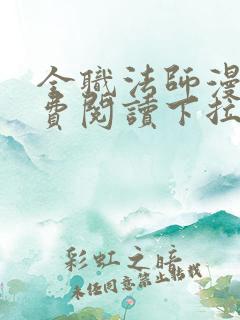 全職法師漫
費閱讀下拉
彩虹之暗
未经同意禁止转载